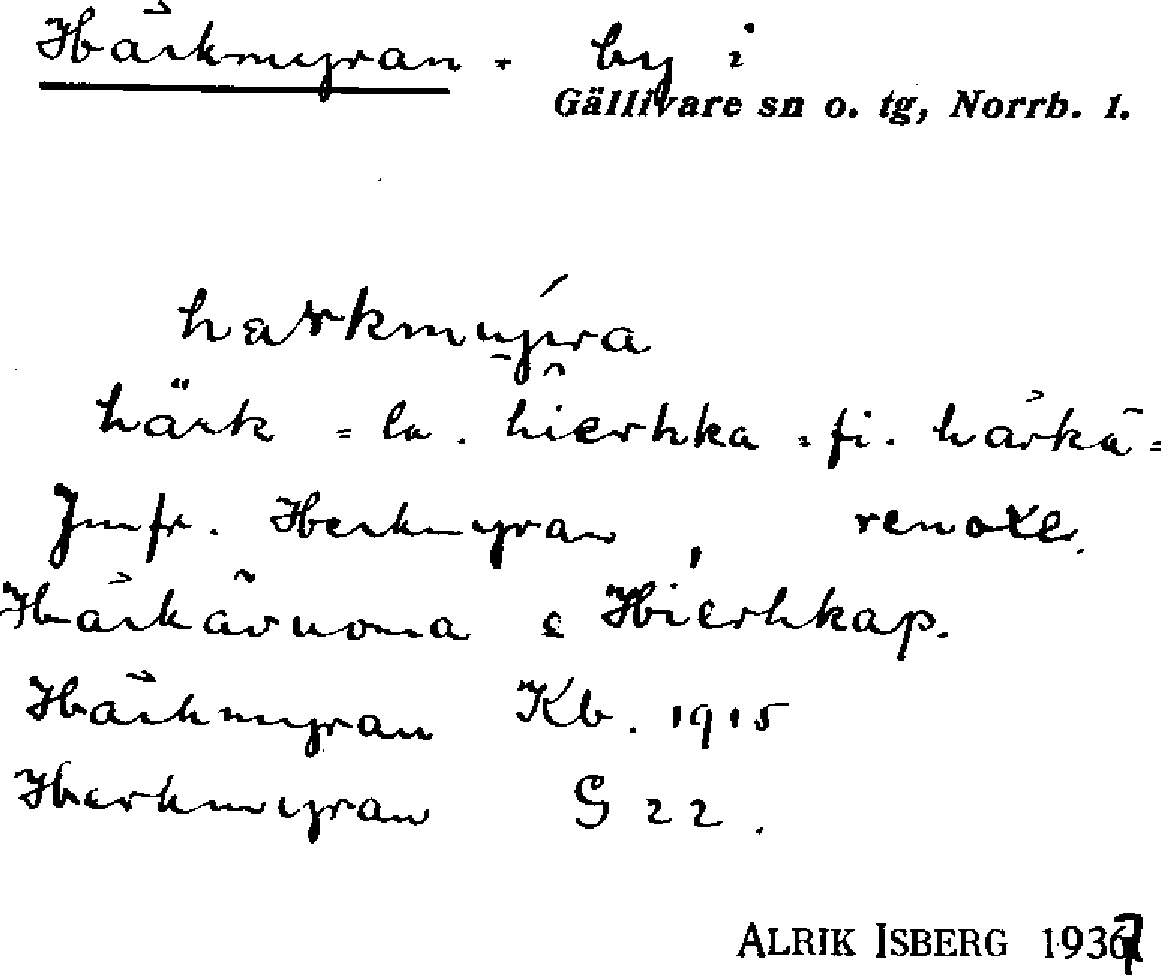 Härkmyran. by i
Gällivare sn o. tg, Norrb. l.
harkmyra
härk = la. hierhka = fi. härkä =
Jmfr. Herkmyran, renoxe.
Härkävuoma Hierhkap.
Härkmyran Kb. 1915
Herkmyran G 22.
ALRIK ISBERG 1937